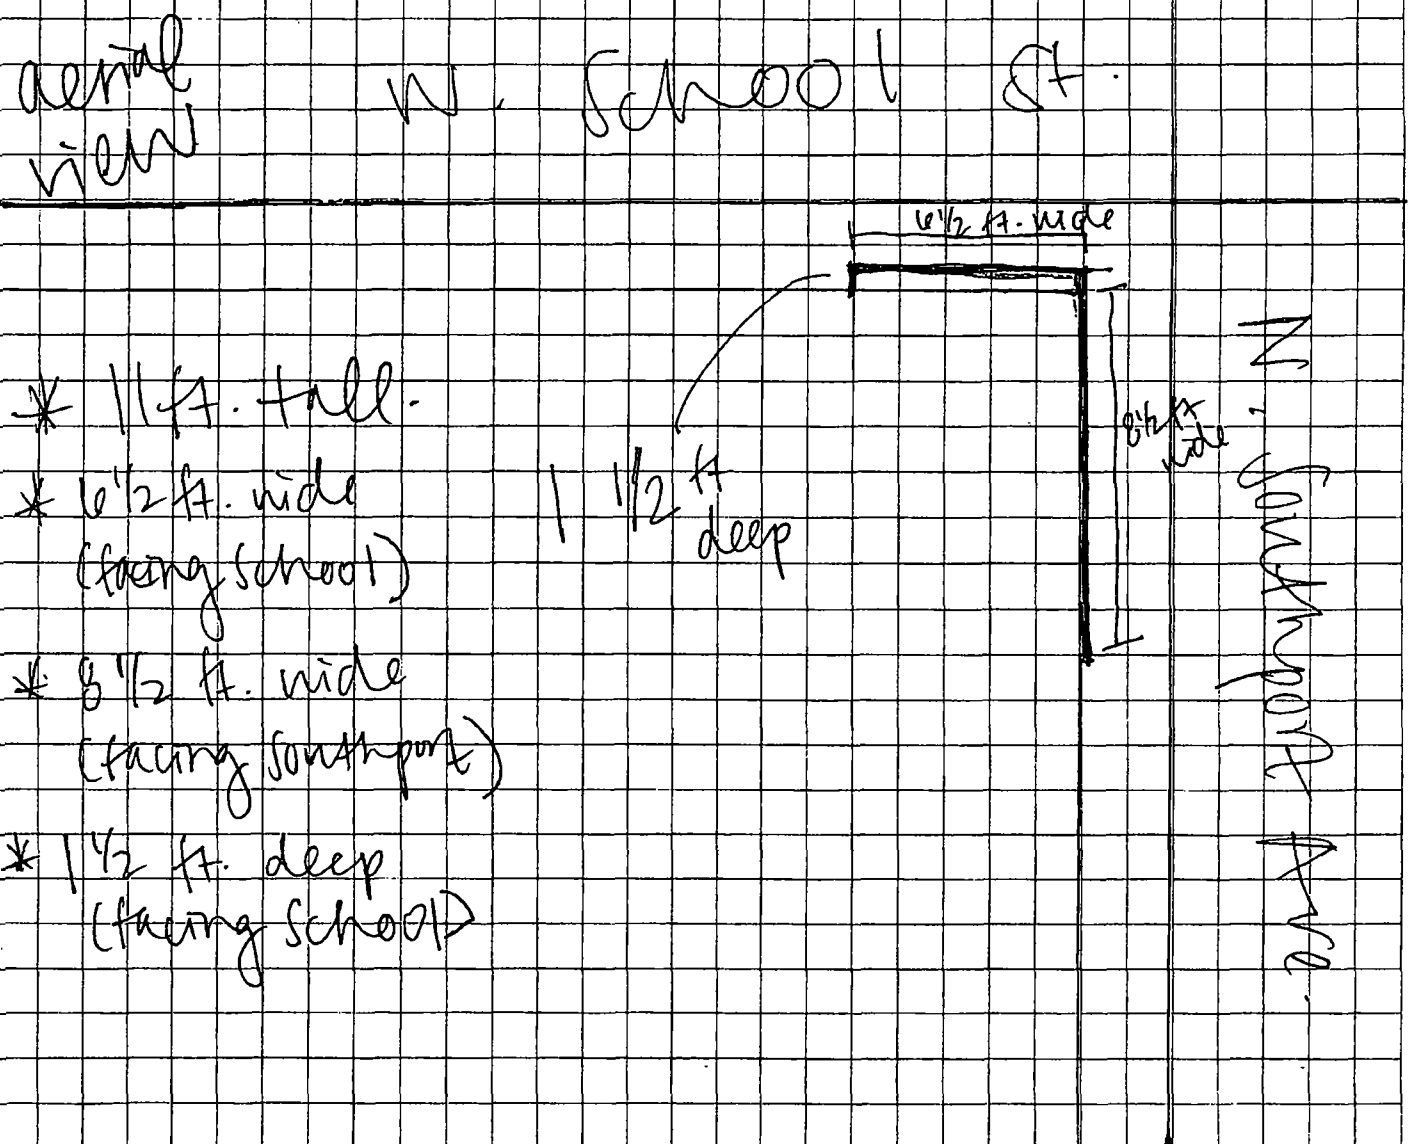 aerial
view
W. School St.
6 1/2 ft. wide
* 11 ft. tall.
* 6 1/2 ft. wide
(facing School)
* 8 1/2 ft. wide
(facing Southport)
* 1 1/2 ft. deep
(facing School)
1 1/2 ft
deep
8 1/2 ft
wide
N. Southport Ave.